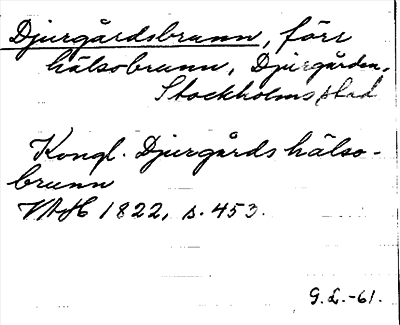 Djurgårdsbrunn, förr
hälsobrunn, Djurgården,
Stockholms stad
Kongl. Djurgårds hälso-
brunn
VAH 1822, s. 453.
G.L.-61.